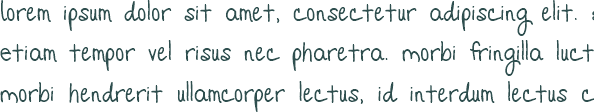 lorem ipsum dolor sit amet, consectetur adipiscing elit.
etiam tempor vel risus nec pharetra. morbi fringilla luct
morbi hendrerit ullamcorper lectus, id interdum lectus c